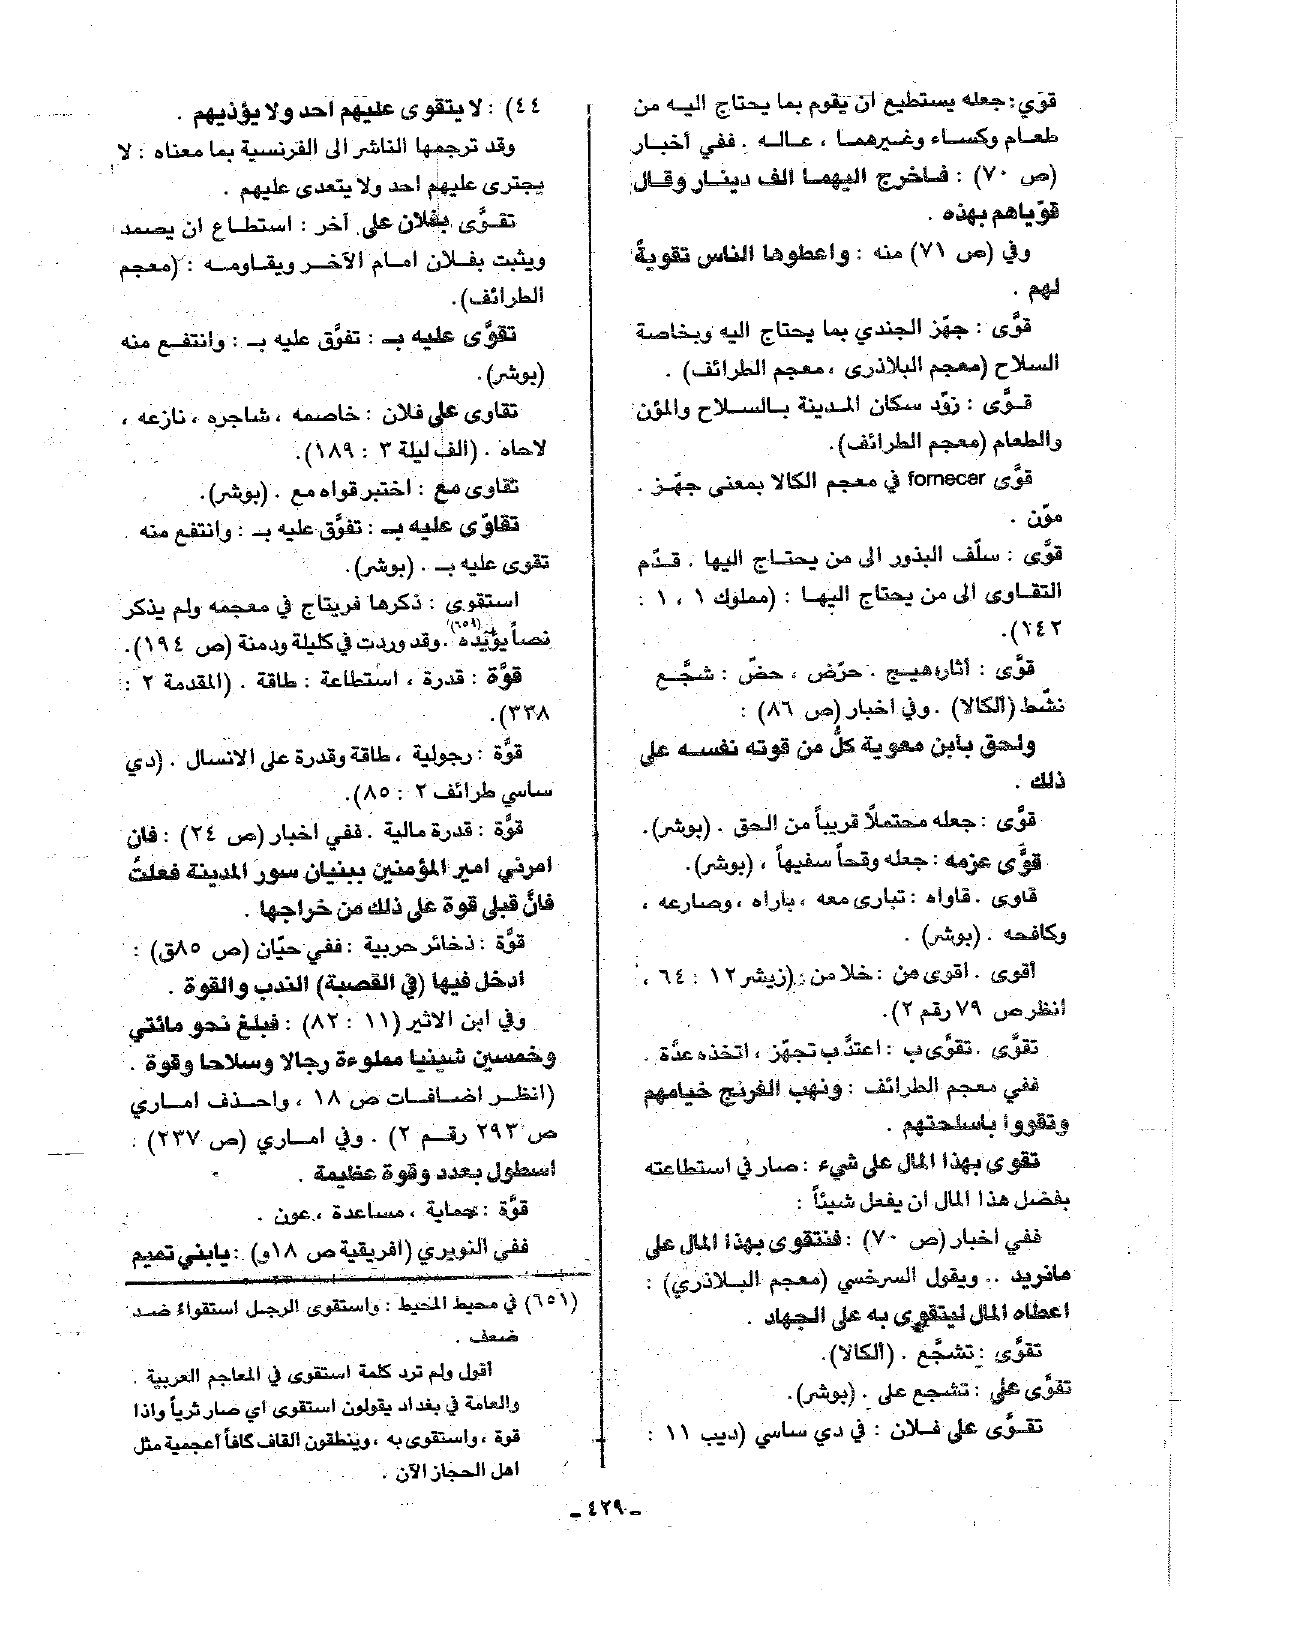 قوّي: جعله يستطيع ان يقوم بما يحتاج اليه من
طعام وكساء وغيرهما ، عاله . ففي أخبار
(ص ٧٠) : فاخرج اليهما الف دينار وقال
قوّياهم بهذه .
وفي (ص ٧١) منه : واعطوها الناس تقويةً
لهم .
قوَّى : جهّز الجندي بما يحتاج اليه وبخاصة
السلاح (معجم البلاذرى ، معجم الطرائف) .
قوَّى : زوّد سكان المدينة بالسلاح والمؤن
والطعام (معجم الطرائف).
قوَّى fornecer في معجم الكالا بمعنى جهّز .
موّن .
قوَّى : سلّف البذور الى من يحتاج اليها . قدّم
التقاوى الى من يحتاج اليها : (مملوك ١ ، ١ :
١٤٢).
قوَّى : أثار، هيج . حرّض ، حضّ : شجَّع
نشّط (الكالا) . وفي اخبار (ص ٨٦) :
ولحق بأبن معوية كلُّ من قوته نفسه على
ذلك .
قوَّى : جعله محتملًا قريباً من الحق . (بوشر).
قوَّى عزمه : جعله وقحاً سفيهاً ، (بوشر).
قاوى . قاواه : تبارى معه ، باراه ، وصارعه ،
وكافحه . (بوشر) .
أقوى . اقوى من : خلا من : (زيشر ١٢ : ٦٤ ،
انظر ص ٧٩ رقم ٢).
تقوَّى . تقوَّى ب : اعتدَّ ب تجهّز ، اتخذه عدّة .
ففي معجم الطرائف : ونهب الفرنج خيامهم
وتقووا باسلحتهم .
تقوى بهذا المال على شيء : صار في استطاعته
بفضل هذا المال ان يفعل شيئاً :
ففي اخبار (ص ٧٠) : فنتقوى بهذا المال على
مانريد .. ويقول السرخسي (معجم البلاذري) :
اعطاه المال ليتقوى به على الجهاد .
تقوَّى : تشجَّع . (الكالا).
تقوَّى على : تشجع على . (بوشر).
تقوَّى على فلان : في دي ساسي (ديب ١١ :
٤٤) : لا يتقوى عليهم احد ولا يؤذيهم .
وقد ترجمها الناشر الى الفرنسية بما معناه : لا
يجترى عليهم احد ولا يتعدى عليهم .
تقوَّى بفلان على آخر : استطاع ان يصمد
ويثبت بفلان امام الآخر ويقاومه : (معجم
الطرائف).
تقوَّى عليه بـ : تفوَّق عليه بـ : وانتفع منه
(بوشر).
تقاوى على فلان : خاصمه ، شاجره ، نازعه ،
لاحاه . (الف ليلة ٣ : ١٨٩).
تقاوى مع : اختبر قواه مع . (بوشر).
تقاوّى عليه بـ : تفوَّق عليه بـ : وانتفع منه .
تقوى عليه بـ . (بوشر).
استقوى : ذكرها فريتاج في معجمه ولم يذكر
نصاً يؤيّده (٦٥١) . وقد وردت في كليلة ودمنة (ص ١٩٤).
قوَّة : قدرة ، استطاعة : طاقة . (المقدمة ٢ :
٣٣٨).
قوَّة : رجولية ، طاقة وقدرة على الانسال . (دي
ساسي طرائف ٢ : ٨٥).
قوَّة : قدرة مالية . ففي اخبار (ص ٢٤) : فان
امرني امير المؤمنين ببنيان سور المدينة فعلتُ
فانَّ قبلي قوة على ذلك من خراجها .
قوَّة : ذخائر حربية : ففي حيّان (ص ٨٥ق) :
ادخل فيها (في القصبة) الندب والقوة .
وفي ابن الاثير (١١ : ٨٢) : فبلغ نحو مائتي
وخمسين شينيا مملوءة رجالا وسلاحا وقوة .
(انظر اضافات ص ١٨ ، واحذف امارى
ص ٢٩٣ رقم ٢) . وفي امارى (ص ٢٣٧) :
اسطول بعدد وقوة عظيمة .
قوَّة : حماية ، مساعدة ، عون .
ففي النويري (افريقية ص ١٨و) : يابني تميم
(٦٥١) في محيط المحيط : واستقوى الرجل استقواءً ضد
ضعف .
أقول ولم ترد كلمة استقوى في المعاجم العربية .
والعامة في بغداد يقولون استقوى اي صار ثرياً واذا
قوة ، واستقوى به ، وينطقون القاف كافاً أعجمية مثل
اهل الحجاز الآن .
ـ ٤٢٩ ـ